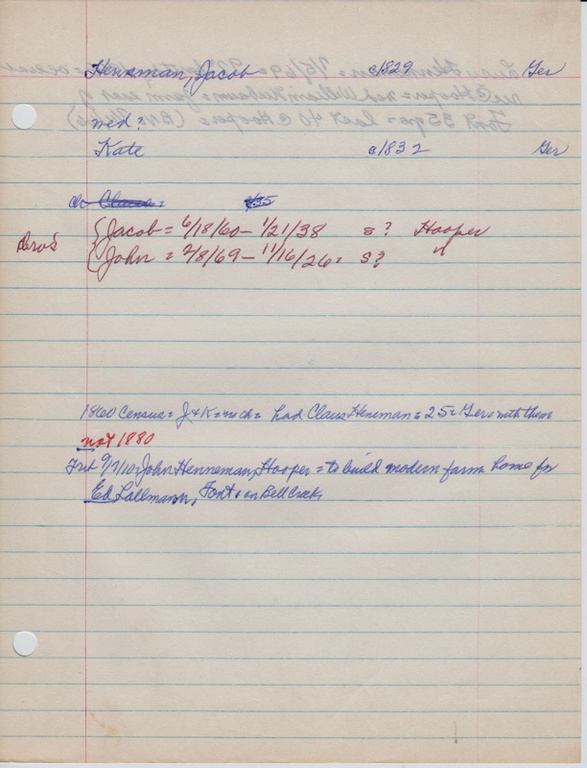 Heneman, Jacob c1829 Ger
med?
Kate c1832 Ger
ch Claus = c35
Bro's {Jacob = 6/18/60 – 1/21/38 s? Hooper
{John = 2/8/69 – 11/16/26 = s? "
1860 Census = J + K = no ch = had Claus Heneman = 25 = Ger = with them
not 1880
Trib 9/7/10, John Henneman, Hooper = to build modern farm home for
Ed Lallmann, Font, on Bell Creek,